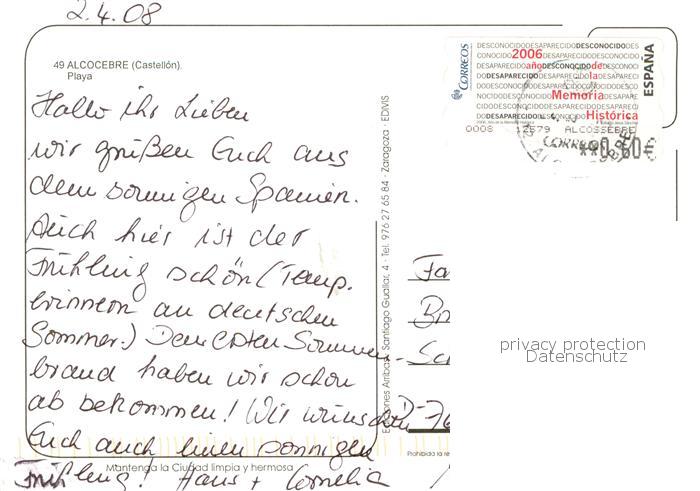 2.4.08
49 ALCOCEBRE (Castellón).
Playa
Hallo ihr Lieben
wir grüßen Euch aus
dem sonnigen Spanien.
Auch hier ist der
Frühling schön (Temp.
erinnern an deutschen
Sommer.) Den ersten Sonnen-
brand haben wir schon
ab bekommen! Wir wünschen
Euch auch einen sonnigen
Frühling! Hans + Cornelia
Mantenga la Ciudad limpia y hermosa
Ediciones Arribas · Santiago Guallar, 4 · Tel. 976 27 65 84 · Zaragoza · EDVIS
CORREOS
DESCONOCIDODESAPARECIDODESCONOCIDODES
2006
año de la
Memoria
Histórica
ESPAÑA
0008 12579 ALCOSSEBRE
**0,60€
Fa
Br
Sc
D-76
Prohibida la re
privacy protection
Datenschutz